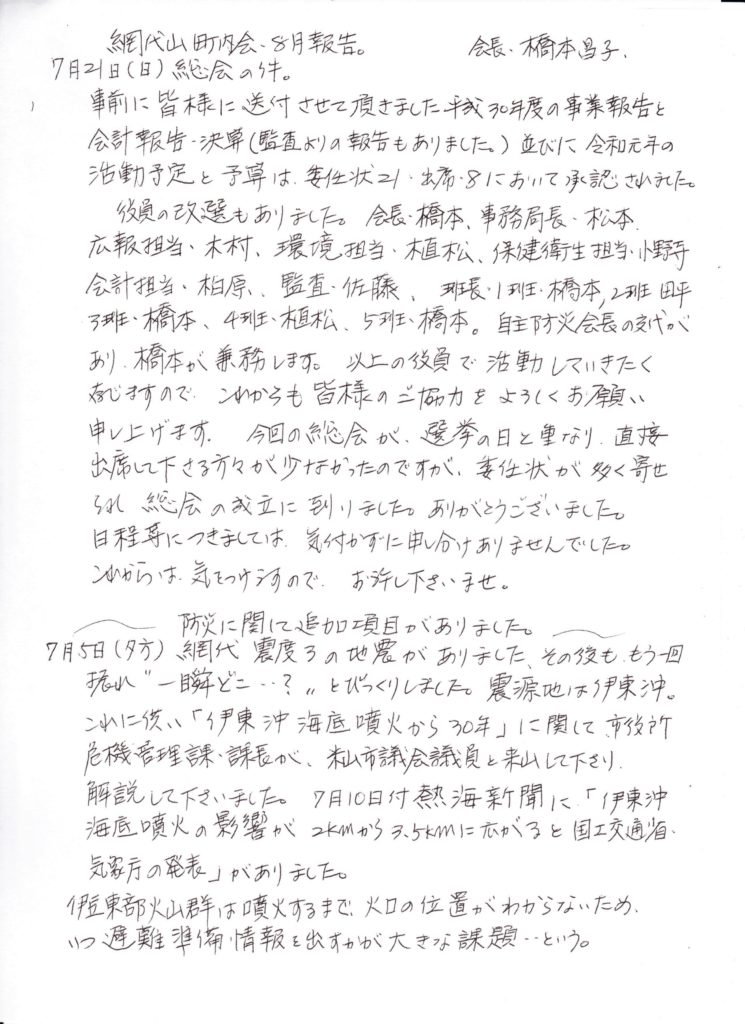 網代山町内会・8月報告。 会長・橋本昌子.
7月21日(日)総会の件。
事前に皆様に送付させて頂きました平成30年度の事業報告と
会計報告・決算(監査よりの報告もありました。)並びに令和元年の
活動予定と予算は、委任状21・出席・8において承認されました。
役員の改選もありました。会長・橋本、事務局長・松本
広報担当・木村、環境担当・植松、保健衛生担当・小野寺
会計担当・柏原、監査・佐藤、班長・1班・橋本,2班田平
3班・橋本、4班・植松、5班・橋本。自主防災会長の交代が
あり、橋本が兼務します。以上の役員で活動していきたく
存じますので、これからも皆様のご協力をよろしくお願い
申し上げます。今回の総会が、選挙の日と重なり、直接
出席して下さる方々が少なかったのですが、委任状が多く寄せ
られ 総会の成立に到りました。ありがとうございました。
日程等につきましては、気付かずに申し分けありませんでした。
これからは、気をつけますので、お許し下さいませ。
防災に関して追加項目がありました。
7月5日(夕方)網代 震度3の地震がありました、その後も、もう一回
揺れ〝一瞬どこ‥?〟とびっくりしました。震源地は伊東沖。
これに伴い「伊東沖海底噴火から30年」に関して、市役所
危機管理課・課長が、米山市議会議員と来山して下さり、
解説して下さいました。7月10日付熱海新聞に、「伊東沖
海底噴火の影響が2kmから3.5kmに広がると国土交通省・
気象庁の発表」がありました。
伊豆東部火山群は噴火するまで、火口の位置がわからないため、
いつ避難準備・情報を出すかが大きな課題‥という。